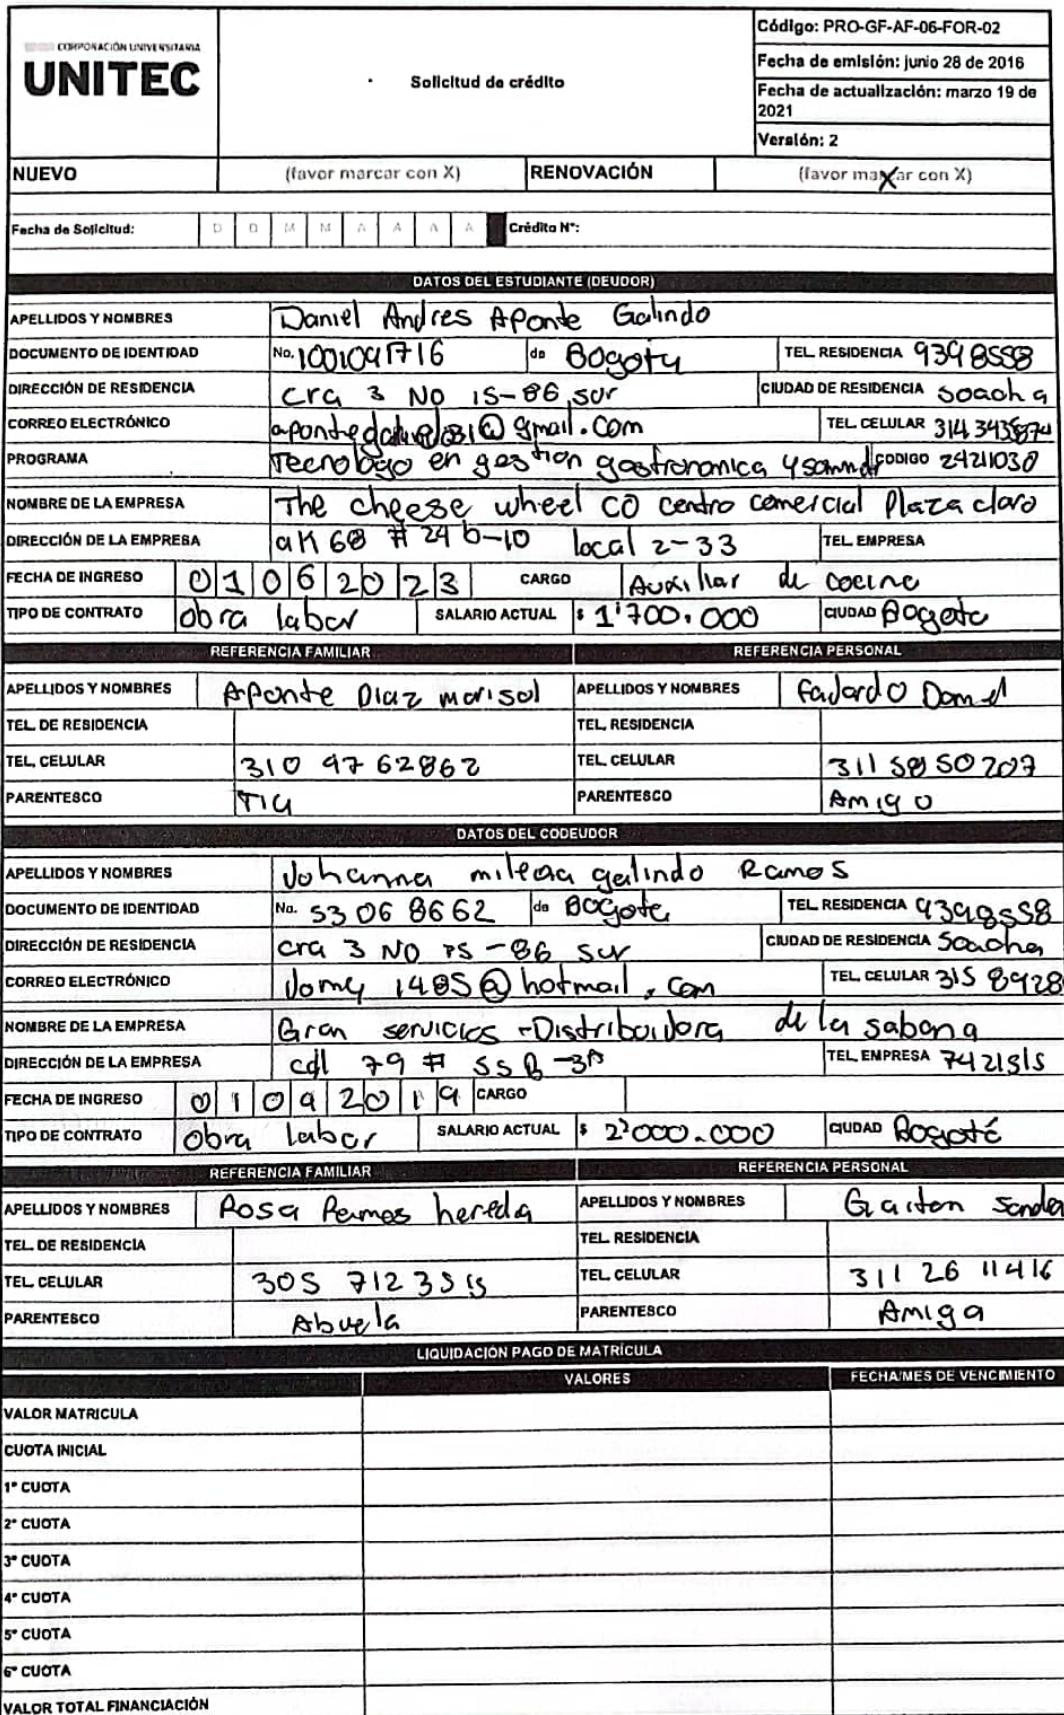 CORPORACIÓN UNIVERSITARIA
UNITEC
Solicitud de crédito
Código: PRO-GF-AF-06-FOR-02
Fecha de emisión: junio 28 de 2016
Fecha de actualización: marzo 19 de
2021
Versión: 2
NUEVO (favor marcar con X) RENOVACIÓN (favor marcar con X) X
Fecha de Solicitud: D D M M A A A A Crédito N°:
DATOS DEL ESTUDIANTE (DEUDOR)
APELLIDOS Y NOMBRES Daniel Andres Aponte Galindo
DOCUMENTO DE IDENTIDAD No. 1001091716 de Bogota TEL. RESIDENCIA 9398558
DIRECCIÓN DE RESIDENCIA cra 3 No 15-86 sur CIUDAD DE RESIDENCIA Soacha
CORREO ELECTRÓNICO @gmail.com TEL. CELULAR
PROGRAMA Tecnologo en gestion gastronomica CODIGO 24211030
NOMBRE DE LA EMPRESA The cheese wheel CO centro comercial Plaza claro
DIRECCIÓN DE LA EMPRESA ak 68 # 24 b-10 local 2-33 TEL. EMPRESA
FECHA DE INGRESO 0 1 0 6 2 0 2 3 CARGO Auxiliar de cocina
TIPO DE CONTRATO obra labor SALARIO ACTUAL $ 1'700.000 CIUDAD Bogota
REFERENCIA FAMILIAR REFERENCIA PERSONAL
APELLIDOS Y NOMBRES Aponte Diaz marisol APELLIDOS Y NOMBRES Fajardo Daniel
TEL. DE RESIDENCIA TEL. RESIDENCIA
TEL. CELULAR 310 97 62862 TEL. CELULAR 311 58 50207
PARENTESCO Tia PARENTESCO Amigo
DATOS DEL CODEUDOR
APELLIDOS Y NOMBRES Johanna galindo Ramos
DOCUMENTO DE IDENTIDAD No. 53 06 8662 de Bogota TEL. RESIDENCIA 9398558
DIRECCIÓN DE RESIDENCIA cra 3 No 15-86 sur CIUDAD DE RESIDENCIA Soacha
CORREO ELECTRÓNICO 1485@hotmail.com TEL. CELULAR 315 8928
NOMBRE DE LA EMPRESA Gran servicios - Distribuidora de la sabana
DIRECCIÓN DE LA EMPRESA 79 # TEL. EMPRESA 7421515
FECHA DE INGRESO 0 1 0 9 2 0 1 9 CARGO
TIPO DE CONTRATO Obra labor SALARIO ACTUAL $ 2'000.000 CIUDAD Bogotá
REFERENCIA FAMILIAR REFERENCIA PERSONAL
APELLIDOS Y NOMBRES Rosa Ramos APELLIDOS Y NOMBRES Gaitan
TEL. DE RESIDENCIA TEL. RESIDENCIA
TEL. CELULAR 305 712 3515 TEL. CELULAR 311 26 11416
PARENTESCO Abuela PARENTESCO Amiga
LIQUIDACIÓN PAGO DE MATRÍCULA
VALORES FECHA/MES DE VENCIMIENTO
VALOR MATRICULA
CUOTA INICIAL
1° CUOTA
2° CUOTA
3° CUOTA
4° CUOTA
5° CUOTA
6° CUOTA
VALOR TOTAL FINANCIACIÓN